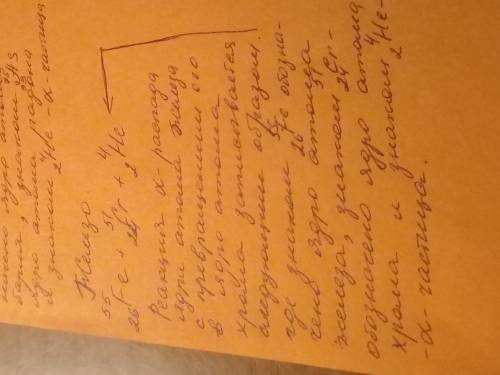 ядро атома
бария, знаком
ядро атома радона
и знаком ⁴₂He - α-частица
Железо
⁵⁵₂₆Fe + ⁵¹₂₄Cr + ⁴₂He
Реакция α-распада
ядра атома железа
с превращением его
в ядро атома
хрома записывается
следующим образом:
где знаком ⁵⁵₂₆Fe обозна-
чено ядро атома
железа, знаком ⁵¹₂₄Cr -
обозначено ядро атома
хрома и знаком ⁴₂He -
- α-частица.